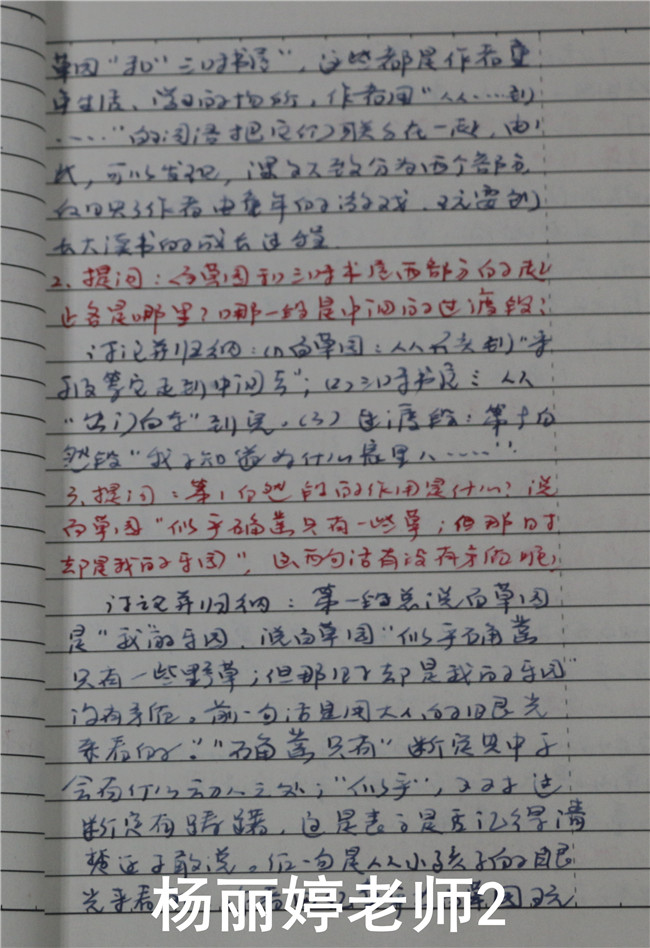 草园"和"三味书屋"，这些都是作者童
年生活、学习的场所，作者用"从……到
……"的词语把它们联系在一起，由
此，可以发现，课文大致分为两个部分
叙归只了作者由童年的游戏、玩耍到
长大读书的成长过程
2、提问：百草园和三味书屋两部分的起
止各是哪里？哪一段是中间的过渡段？
讨论并归纳：(1)百草园：从开头到"
等它走到中间去"；(2)三味书屋：从
"出门向东"到完。(3)过渡段：第十自
然段"我不知道为什么家里人……"
3、提问：第1自然段的作用是什么？说
百草园"似乎确凿只有一些草；但那时
却是我的乐园"，这两句话有没有矛盾呢？
讨论并归纳：第一段总说百草园
是"我"的乐园，说百草园"似乎确凿
只有一些野草；但那时却是我的乐园"
没有矛盾。前一句话是用大人的眼光
来看的："确凿只有"断定其中不
会有什么动人之处；"似乎"，又对这
断定有踌躇，这是表示是否记得清
楚还不敢说。后一句是从小孩子的眼
光来看
杨丽婷老师2